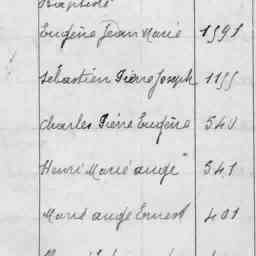 Baptiste
Eugène Jean Marie 1591
Sébastien Pierre Joseph 1155
Charles Pierre Eugène 540
Henri Marie ange 541
Marie ange Ernest 401